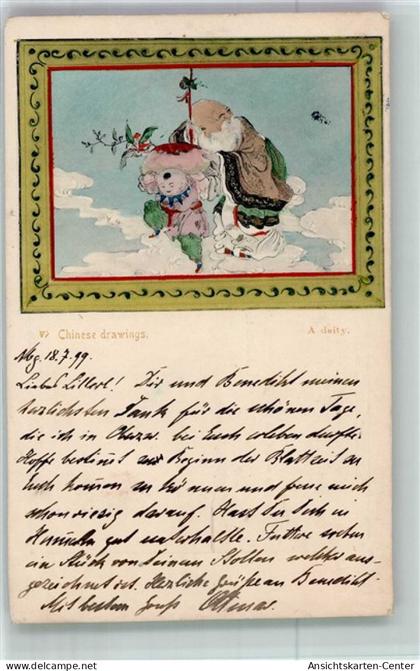 Chinese drawings.
A deity.
18.7.99.
Liebes Lillerl! Dir und Benedikt meinen
herzlichsten Dank für die schönen Tage,
die ich in bei Euch erleben durfte.
Hoffe bestimmt Beginn der an
Euch kommen zu können und freue mich
schon riesig darauf. Hast Du Dich in
gut unterhalten.
ein Stück von Deinem Stollen welcher aus-
gezeichnet ist. Herzliche Grüße an Benedikt.
Mit bestem Gruß
© Ansichtskarten-Center
www.delcampe.net
Ansichtskarten-Center